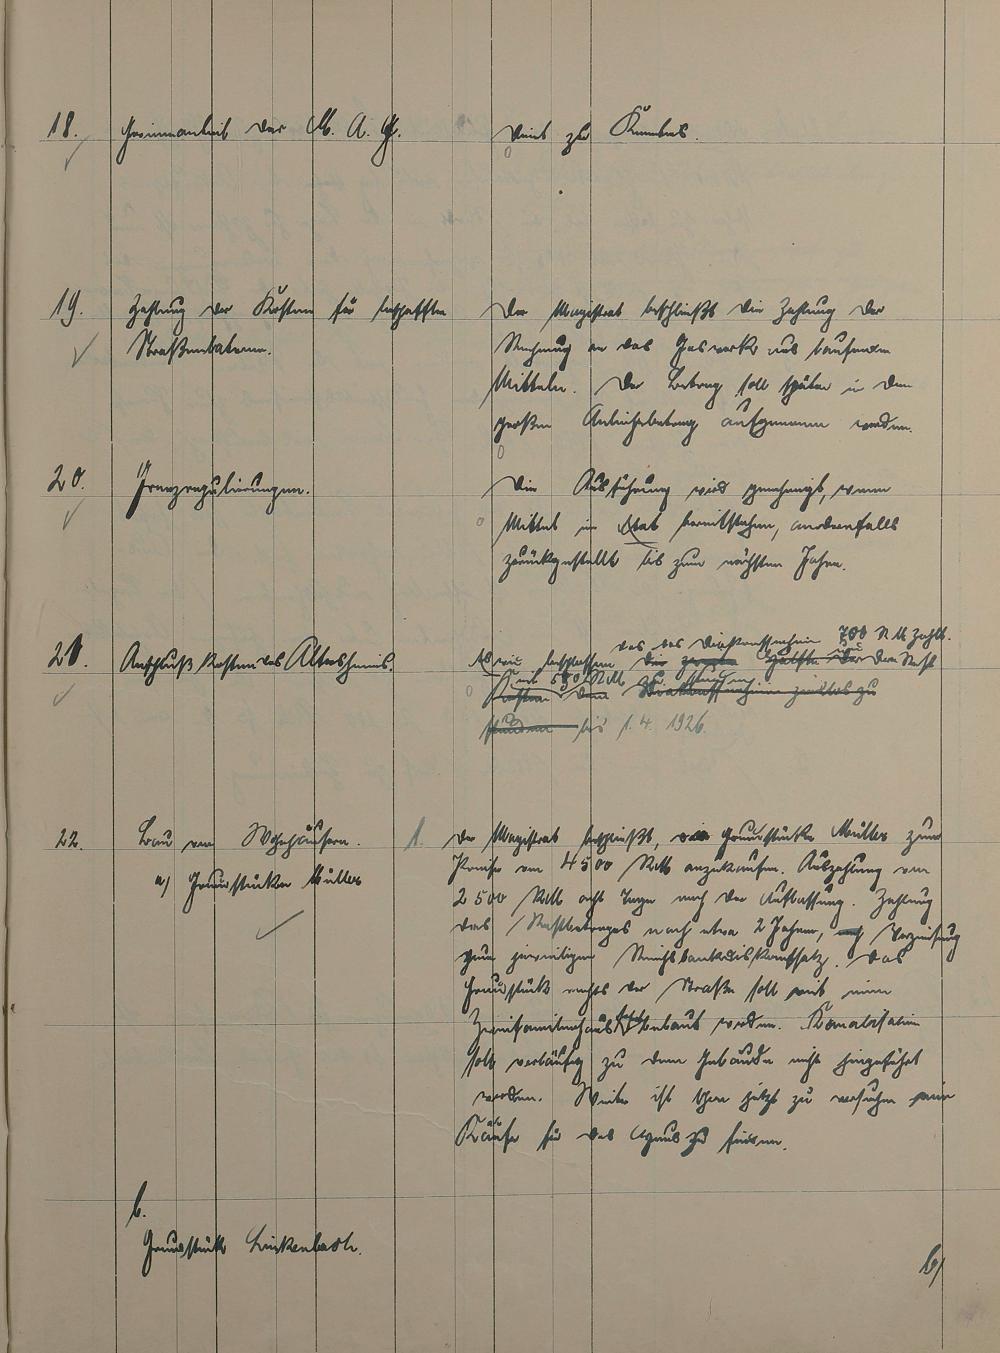 18. Gewinnanteil der M. A. G.
dient zur Kenntnis.
19. Zahlung der Kosten für beschaffte
Straßenlaternen.
Der Magistrat beschließt die Zahlung der
Rechnung an das Gaswerk aus laufenden
Mitteln. Der Betrag soll später in den
großen Anleihebetrag aufgenommen werden.
20. Grenzregulierungen.
Die Ausführung wird genehmigt, wenn
Mittel im Etat bereitstehen, andernfalls
zurückgestellt bis zum nächsten Jahre.
21. Anschlußkosten des Altersheims.
das das 700 RM zahlt.
Es wird beschlossen, die Hälfte der den Rest
Kosten dem mit 580 RM zinslos zu
stunden bis 1. 4. 1926.
22. Bau von Wohnhäusern.
a) Grundstücke Müller
1. Der Magistrat beschließt, Grundstücke Müller zum
Preise von 4500 RM anzukaufen. Auszahlung von
2500 RM acht Tage nach der Auflassung. Zahlung
des Restbetrages nach etwa 2 Jahren, Verzinsung
zum jeweiligen Reichsbankdiskontsatz. Das
Grundstück rechts der Straße soll mit einem
Zweifamilienhaus bebaut werden. Kanalisation
soll vorläufig zu dem Gebäude nicht hingeführt
werden. Weiter ist schon jetzt zu versuchen einen
Käufer für das Haus zu finden.
b.
Grundstück Luckenbach.
b)